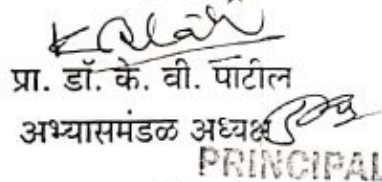 प्रा. डॉ. के. वी. पाटील
अभ्यासमंडळ अध्यक्ष
PRINCIPAL